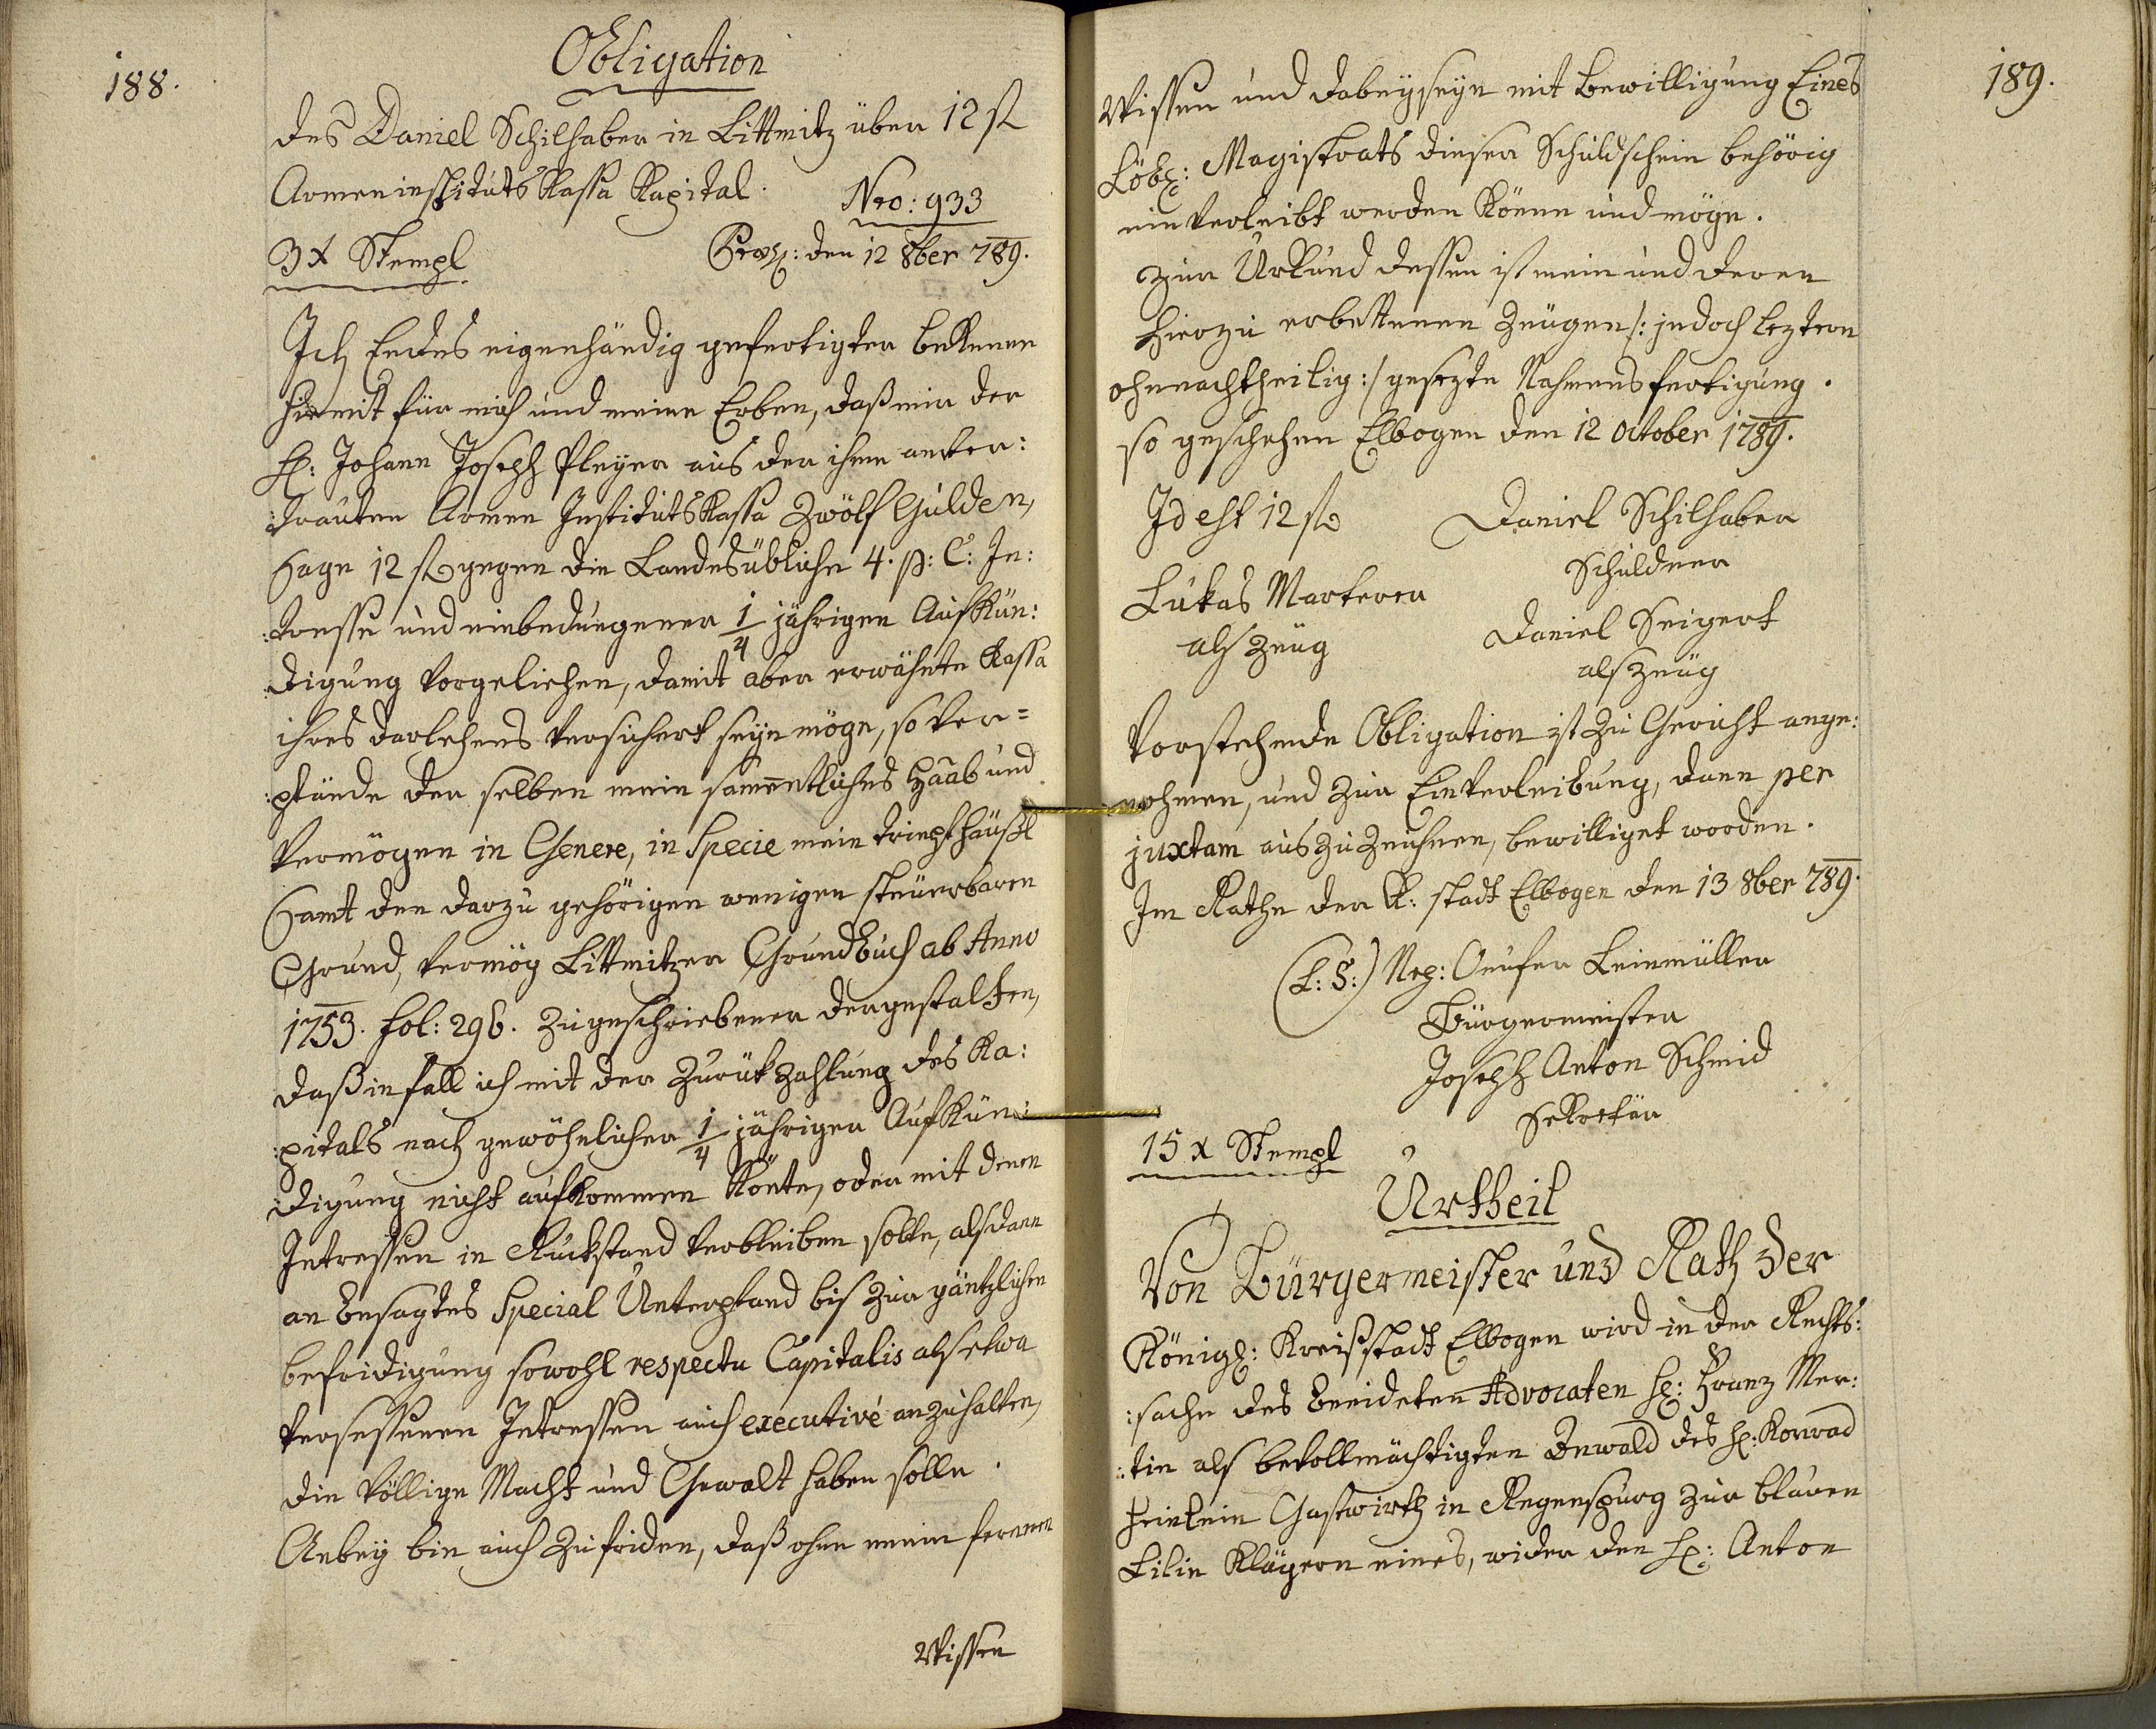 188.
Obligation
des Daniel Schilhaber in Littmitz über 12 fl
Armeninstituts Kassa Kapital.
Nro: 933
3 x Stempl
Præs: den 12 8ber 789.
Ich Endes eigenhändig gefertigter bekenne
hiemit für mich und meine Erben, daß mir der
H: Johann Joseph Pleyer aus der ihme anver:
:trauten Armen Instituts Kassa Zwölf Gulden,
Sage 12 fl gegen die Landesübliche 4. p: C: In:
:tresse und einbedungener 1/4 jährigen Aufkün:
:digung vorgeliehen, damit aber erwähnte Kassa
ihres darlehens versichert seyn möge, so ver=
:pfände der selben mein sammentliches Haab und
Vermögen in Genere, in Specie mein tripfhäußl
Samt den darzu gehörigen wenigen steuerbaren
Grund, vermög Littmitzer Grundbuch ab Anno
1753. fol: 296. zugeschriebener dergestalten,
daß in fall ich mit der Zurükzahlung des Ka:
:pitals nach gewöhnlicher 1/4 jähriger Aufkün:
:digung nicht aufkommen könte, oder mit denen
Intressen in Rückstand verbleiben solte, alsdann
an besagtes Special Unterpfand bis zur gäntzlichen
befridigung sowohl respectu Capitalis als etwa
versessenen Intressen auch executivé anzuhalten,
die völlige Macht und Gewalt haben solle.
Anbey bin auch zufriden, daß ohne mein fernern
Wissen
189.
Wissen und dabeyseyn mit bewilligung Eines
Löbl: Magistrats dieser Schuldschein behörig
einverleibt werden könne und möge.
Zur Urkund dessen ist mein und deren
hierzu erbettenen Zeugen /: jedoch leztern
ohnnachtheilig :/ gesezte Nahmensfertigung.
so geschehen Elbogen den 12 october 1789.
Id est 12 fl
Daniel Schilhaber
Schuldner
Lukas Marterer
als Zeug
Daniel Seigert
als Zeug
Vorstehende Obligation ist zu Gericht ange:
nohmen, und zur Einverleibung, dann per
juxtam auszuzeichnen, bewilliget worden.
Im Rathe der K: stadt Elbogen den 13 8ber 789.
(L: S:) Nep: Leinmüller
Bürgermeister
Joseph Anton Schmid
Sekretär
15 x Stempl
Urtheil
Von Bürgermeister und Rath der
Königl: Kreißstadt Elbogen wird in der Rechts:
:sache des beeideten Advocaten H: Franz Mer:
:tin als bevollmächtigten Anwald des H: Konrad
Heinlein Gastwirth in Regenspurg zur blauen
Lilie Klägern eines, wider den H: Anton